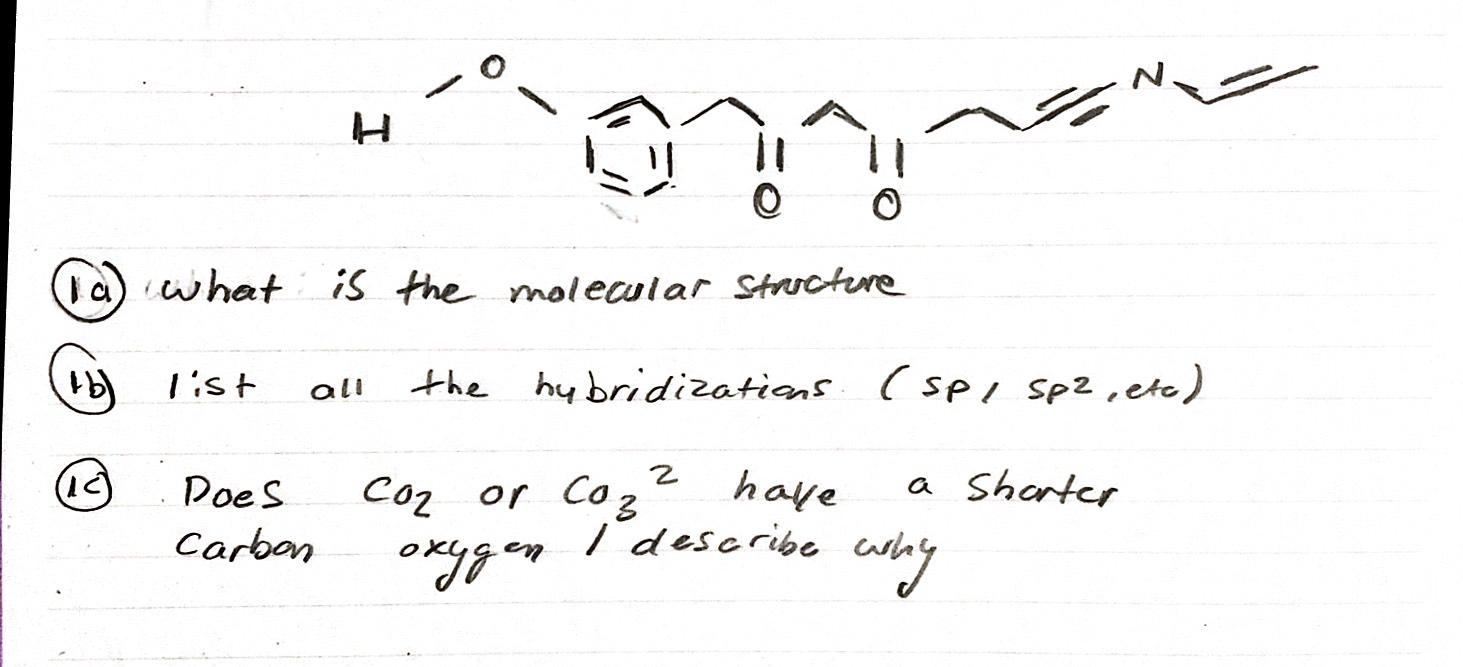 O N
H
O O
1a what is the molecular structure
1b list all the hybridizations (sp, sp2, etc)
1c Does CO2 or CO3 2 have a shorter
carbon oxygen / describe why